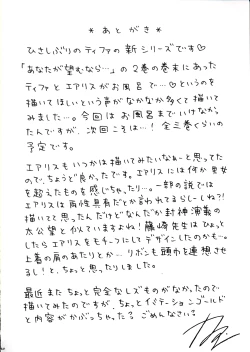 ＊あとがき＊
ひさしぶりのティファの新シリーズです♡
「あなたが望むなら…」の2巻の巻末にあった
ティファとエアリスがお風呂で…♡というのを
描いてほしいという声がなかなか多くて描いて
みました…。今回はお風呂までいけなかっ
たんですが、次回こそは…！全三巻くらいの
予定です。
エアリスもいつかは描いてみたいなーと思ってた
ので、ちょうど良かった、です。エアリスには何か男女
を超えたものを感じちゃたり…。一部の説では
エアリスは両性具有だとか言われてるらしーしね?!
描いてて思ったんだけどなんだか封神演義の
太公望と似ていますよね！藤崎先生はひょっと
したらエアリスをモチーフにしてデザインしたのかも…。
上着の肩のあたりとか…リボンも頭巾を連想させ
るし！と、ちょっと思ったりしました。
最近またちょっと完全なレズものがなかったので
描いてみたのですが、ちょっとイミテーションゴールド
と内容がかぶっちゃった？ごめんなさい？